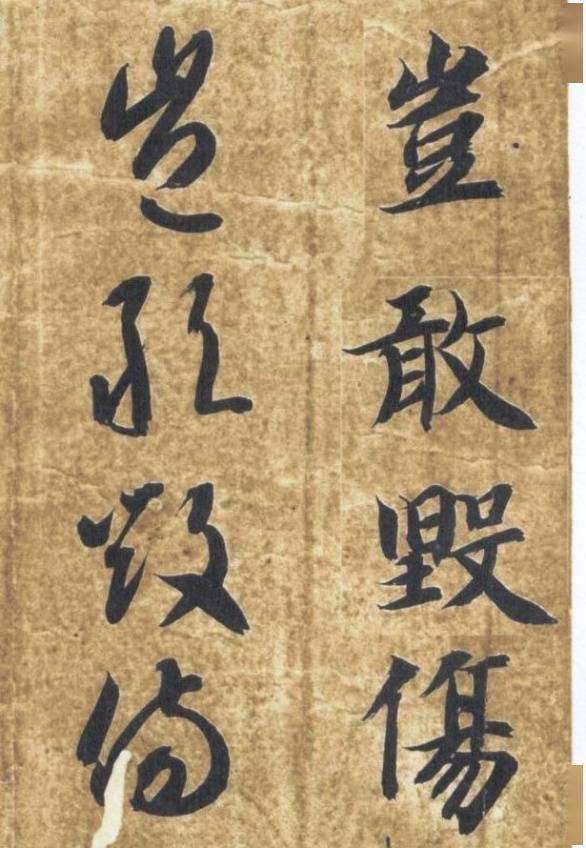 豈敢毀傷
豈敢毀傷